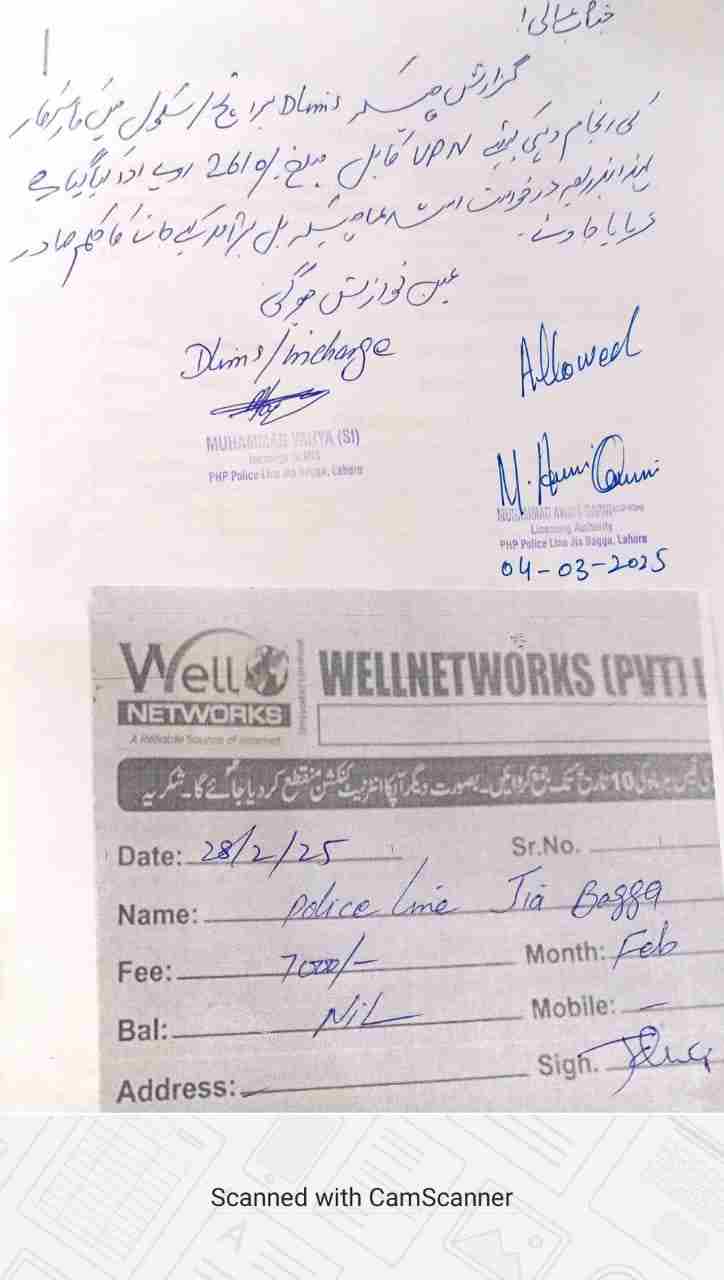 جناب عالی!
گزارش ہیکہ Dlims برانچ / سکول میں کار سرکار
کی انجام دہی کیلئے VPN کا بل مبلغ 2610/- روپے ادا کیا گیا ہے
لہذا بذریعہ درخواست استدعا ہیکہ بل برآمد کیے جانے کا حکم صادر
فرمایا جاوے۔
عین نوازش ہوگی
Dlims/Incharge
Allowed
MUHAMMAD YAHYA (SI)
PHP Police Line Jia Bagga, Lahore
Licensing Authority
PHP Police Line Jia Bagga, Lahore
04-03-2025
Well
NETWORKS
A Reliable Source of Internet
WELLNETWORKS (PVT)
10 تاریخ تک جمع کرائیں۔ بصورت دیگر آپکا انٹرنیٹ کنکشن منقطع کر دیا جائے گا۔ شکریہ
Date: 28/2/25 Sr.No.
Name: Police Line Jia Bagga
Fee: 7000/- Month: Feb
Bal: NiL Mobile: —
Address: Sign.
Scanned with CamScanner